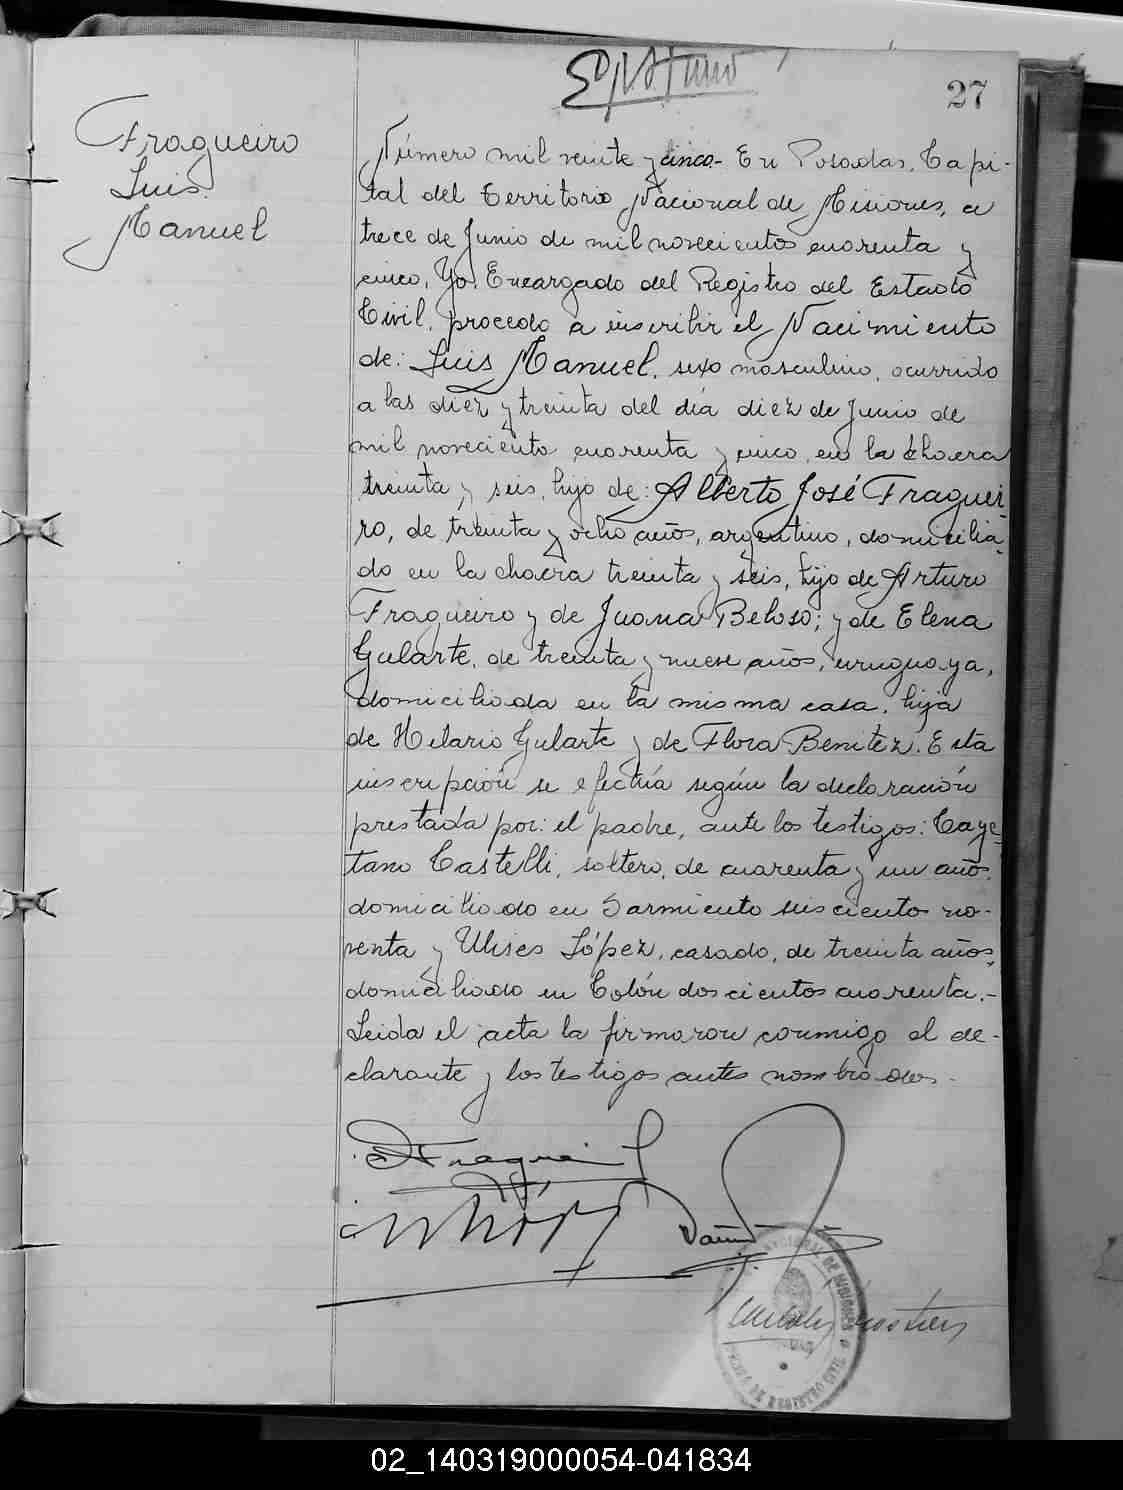 27
Fragueiro
Luis
Manuel
Número mil veinte y cinco.- En Posadas, Capi-
tal del Territorio Nacional de Misiones, a
trece de Junio de mil novecientos cuarenta y
cinco, Yo, Encargado del Registro del Estado
Civil, procedo a inscribir el Nacimiento
de: Luis Manuel, sexo masculino, ocurrido
a las diez y treinta del día diez de Junio de
mil noveciento cuarenta y cinco, en la chacra
treinta y seis, hijo de: Alberto José Fraguei-
ro, de treinta y ocho años, argentino, domicilia-
do en la chacra treinta y seis, hijo de Arturo
Fragueiro y de Juana Beloso; y de Elena
Gularte, de treinta y nueve años, uruguaya,
domiciliada en la misma casa, hija
de Hilario Gularte y de Flora Benitez. Esta
inscripción se efectúa según la declaración
prestada por: el padre, ante los testigos: Caye-
tano Castelli, soltero, de cuarenta y un años,
domiciliado en Sarmiento seiscientos no-
venta y Ulises López, casado, de treinta años,
domiciliado en Colón doscientos cuarenta.-
Leida el acta la firmaron conmigo el de-
clarante y los testigos antes nombrados.-
02_140319000054-041834